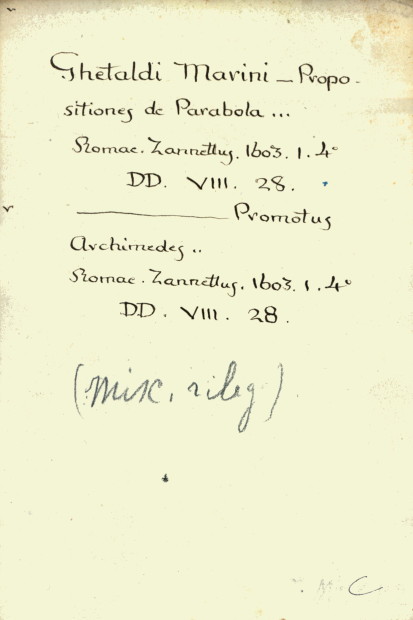 Ghetaldi Marini — Propo-
sitiones de Parabola ...
Romae. Zannettus. 1603. 1. 4°
DD. VIII. 28.
———— Promotus
Archimedes ..
Romae. Zannettus. 1603. 1. 4°
DD. VIII. 28.
(misc. rileg)
C